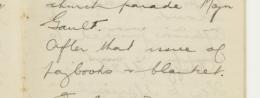 church parade Major
Gault.
After that issue of
paybooks & blanket.